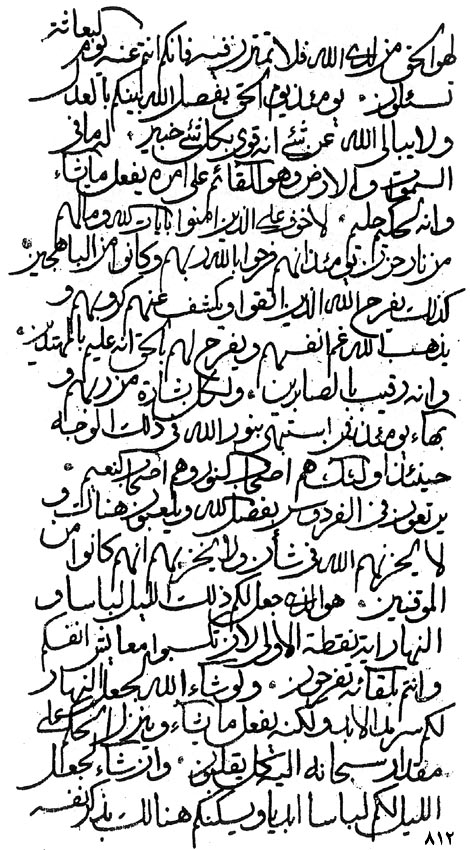 كبعاثة
لهو الحق من لدى الله فلا تمترن فيه فانكم انتم عنه يوم
تسئلون ۰ يومئذ يوم الحق يفصل الله بينكم بالعدل
ولا يبالى الله عن شئ انه قوى بكل شئ خبير ۰ له ما فى
السموات والارض وهو القائم على امره يفعل ما يشاء
وانه لحكيم حليم ۰ لا خوف على الذين امنوا بايات الله وما لهم
من نار حزن يومئذ انهم فرحوا بالله ربهم وكانوا من الباهجين
كذلك يفرح الله الذين اتقوا ويكشف عنهم كروبهم و
يذهب الله غم انفسهم ويفرح لهم بالحق انه عليم بالمهتدين ۰
وانه رقيب بالصابرين ۰ ولكل بشارة من ربهم و
بهاء يومئذ فمن ابتهج بنور الله فى ذلك الوجه
حينئذ اولئك هم اصحاب النور وهم اصحاب النعيم ۰
يرتعون فى الفردوس بفضل الله ويلعبون هناك و
لا يحزنهم الله فى شأن ولا يحزبهم انهم كانوا من
الموقنين ۰ هو الذى جعل لكم ذلك الليل لباسا و
النهار اية نقطة الاولى لان تكسبوا معايش انفسكم
وانتم بلقائه تفرحون ۰ ولو شاء الله لجعل النهار
لكم سرمد الابد ولكنه يفعل ما يشاء وينزل الحكم على
مقدار سبحانه اليه كل يقلبون ۰ وان شاء لجعل
الليل لكم لباسا ابديا ويسكنكم هنالك بذكر نفسه
٨١٢